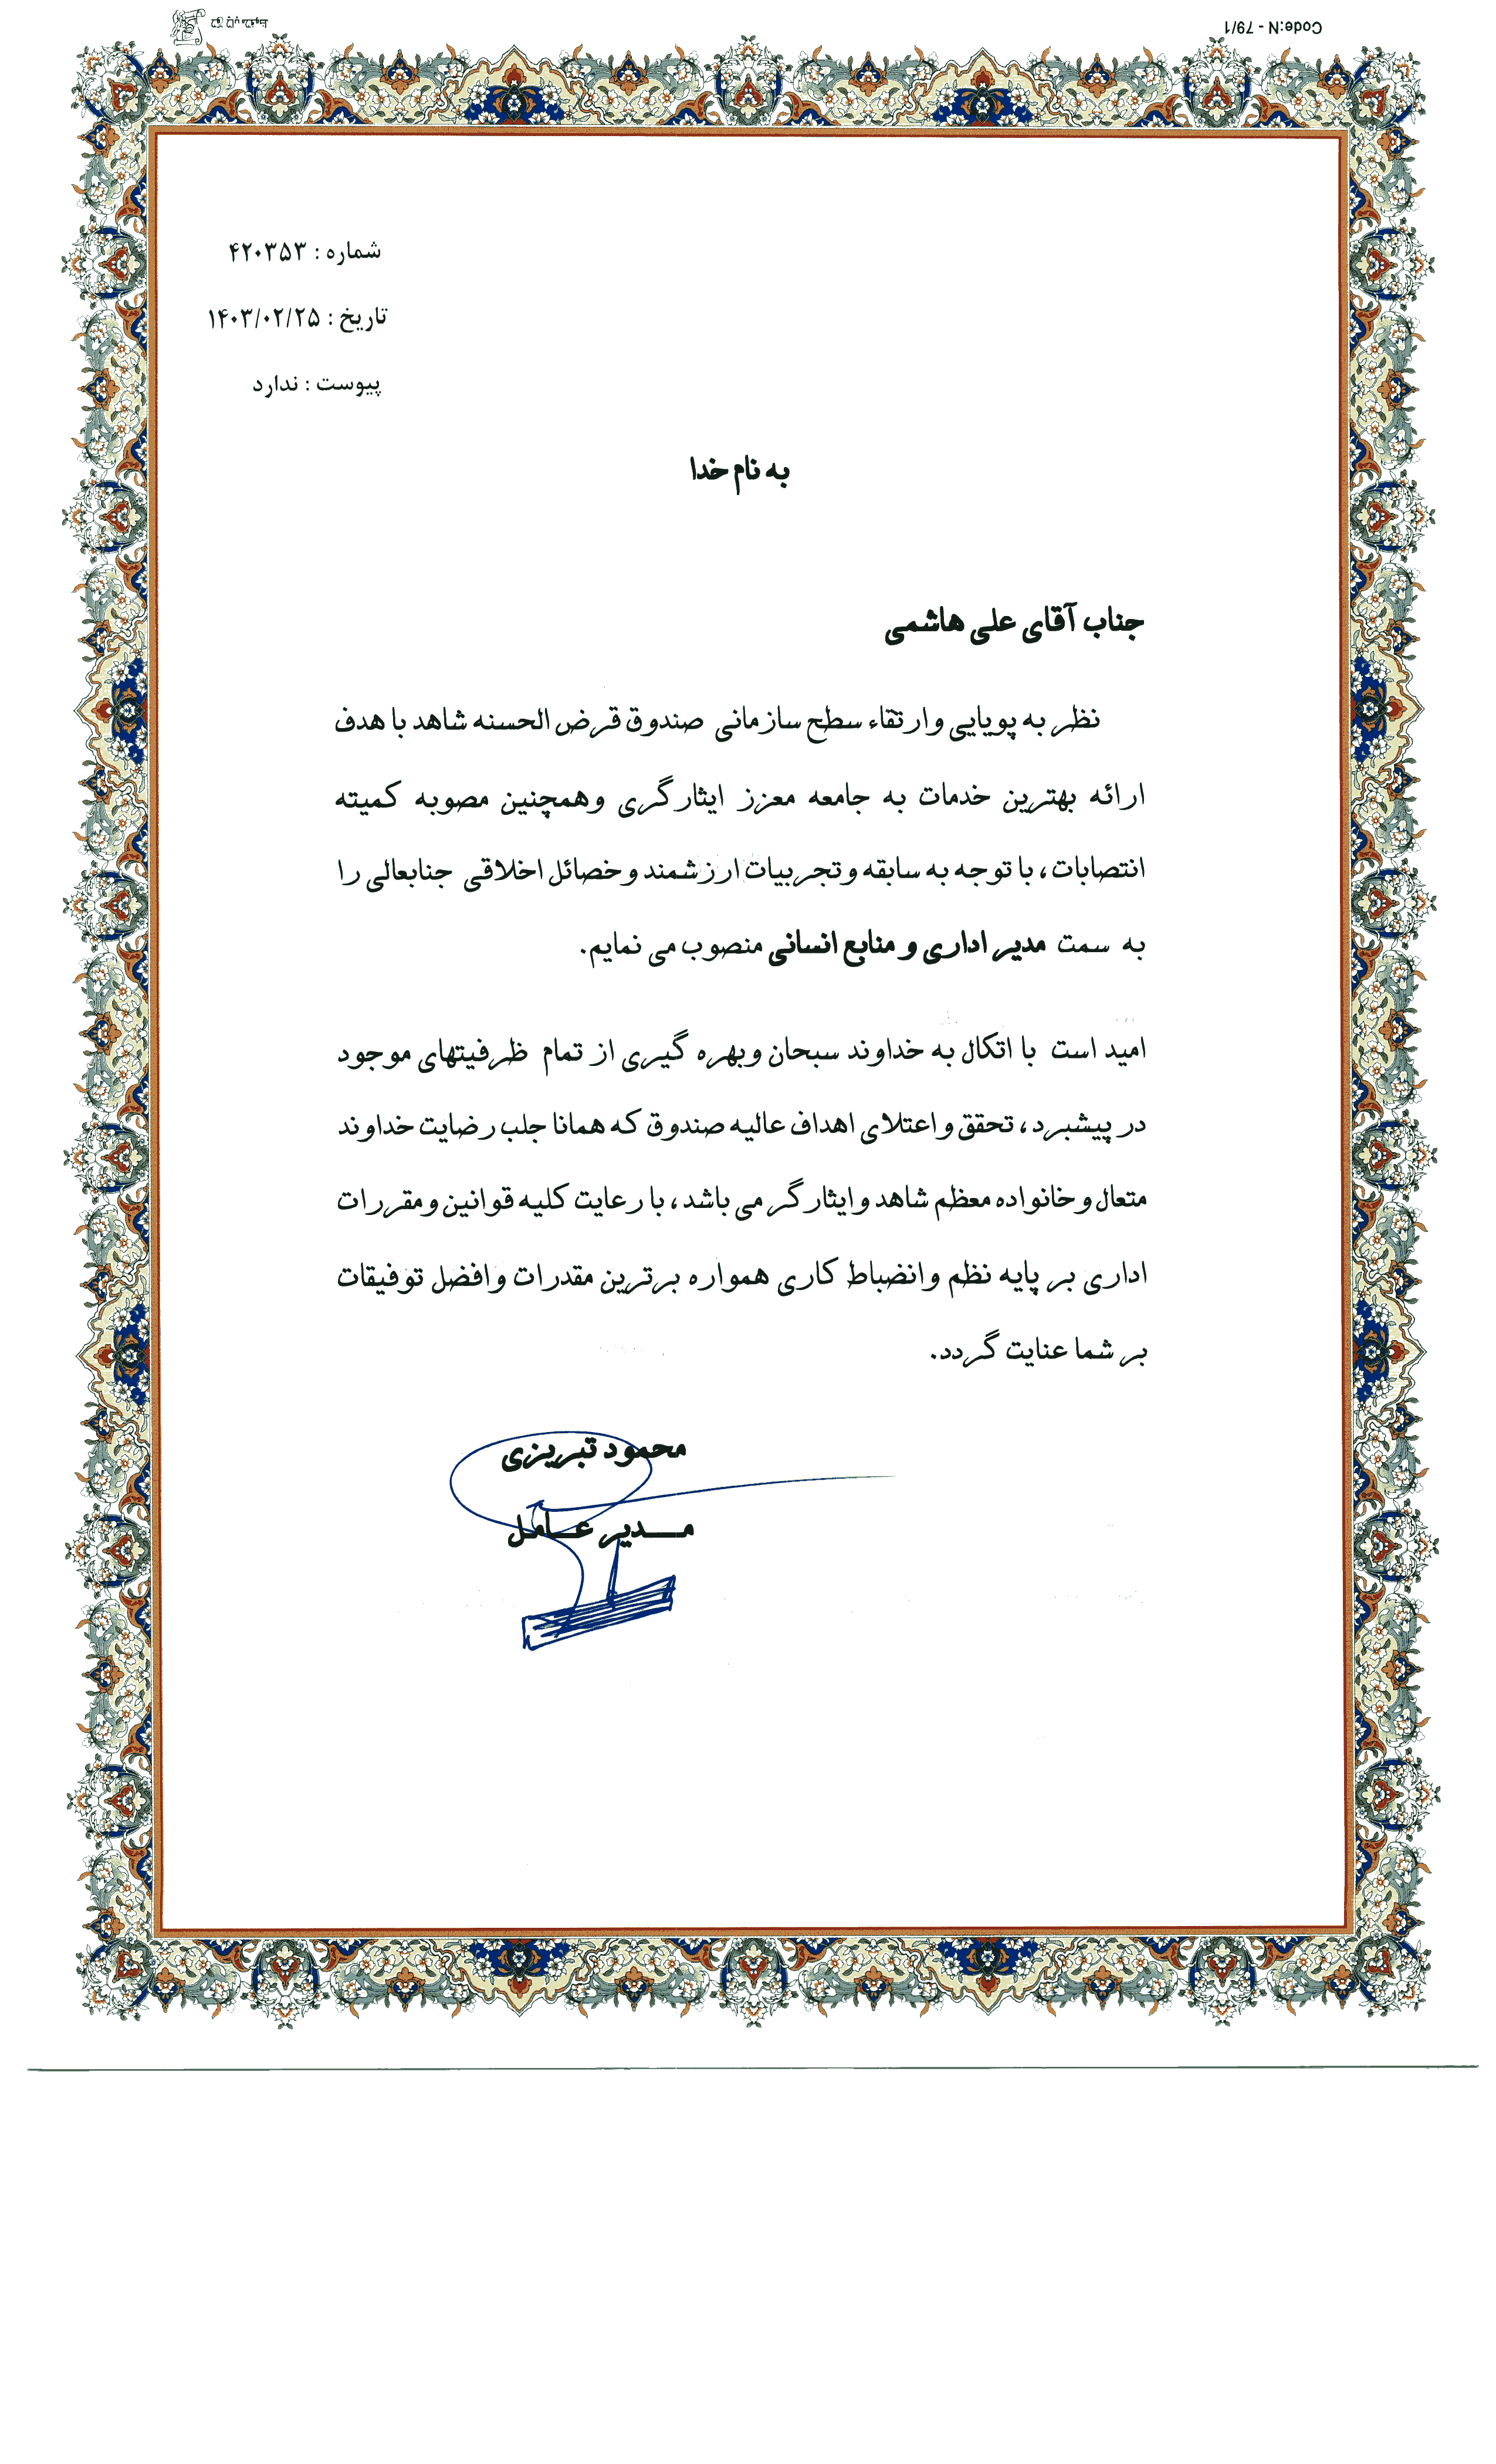 Code:N - 79/1
شماره : ۴۲۰۳۵۳
تاریخ : ۱۴۰۳/۰۲/۲۵
پیوست : ندارد
به نام خدا
جناب آقای علی هاشمی
نظر به پویایی وارتقاء سطح سازمانی صندوق قرض الحسنه شاهد با هدف
ارائه بهترین خدمات به جامعه معزز ایثارگری وهمچنین مصوبه کمیته
انتصابات، با توجه به سابقه وتجربیات ارزشمند وخصائل اخلاقی جنابعالی را
به سمت مدیر اداری و منابع انسانی منصوب می نمایم.
امید است با اتکال به خداوند سبحان وبهره گیری از تمام ظرفیتهای موجود
در پیشبرد، تحقق واعتلای اهداف عالیه صندوق که همانا جلب رضایت خداوند
متعال وخانواده معظم شاهد وایثارگر می باشد، با رعایت کلیه قوانین ومقررات
اداری بر پایه نظم وانضباط کاری همواره برترین مقدرات وافضل توفیقات
بر شما عنایت گردد.
محمود تبریزی
مـــدیر عـــامل